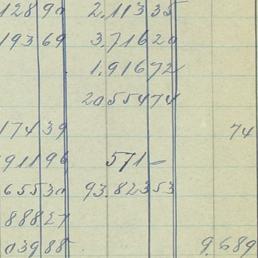 12890 2.11335
19369 3.71620
1.91672
2055474
17439 74
91196 571-
65530 93.82353
88827
03988 9.689